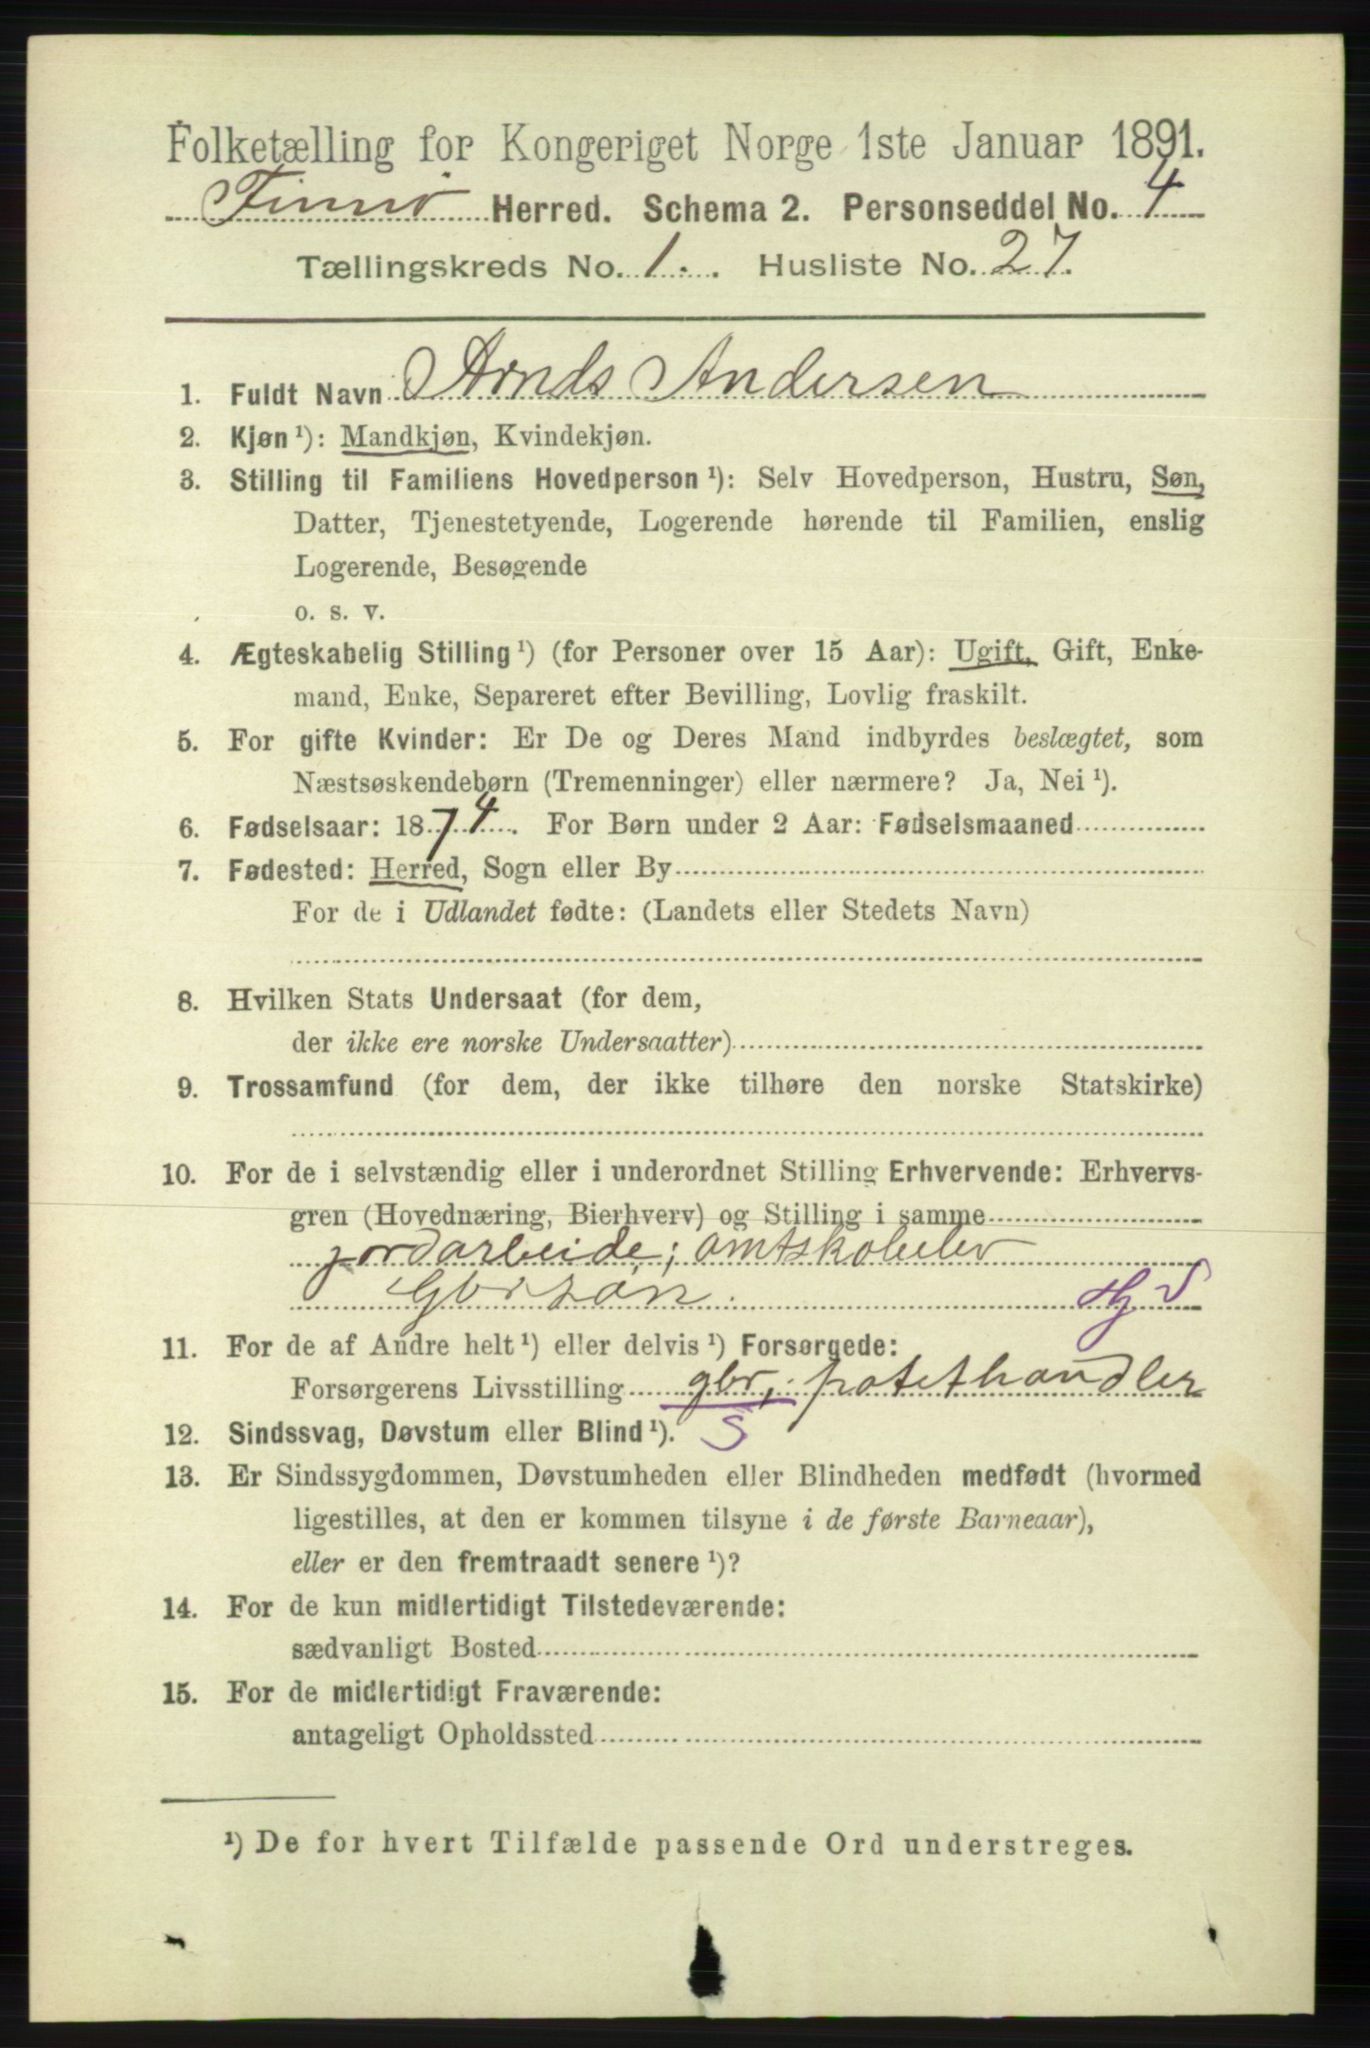 Folketælling for Kongeriget Norge 1ste Januar 1891.
Finnö Herred. Schema 2. Personseddel No. 4
Tællingskreds No. 1. Husliste No. 27.
1. Fuldt Navn Arnds Andersen
2. Kjøn ¹): Mandkjøn, Kvindekjøn.
3. Stilling til Familiens Hovedperson ¹): Selv Hovedperson, Hustru, Søn,
Datter, Tjenestetyende, Logerende hørende til Familien, enslig
Logerende, Besøgende
o. s. v.
4. Ægteskabelig Stilling ¹) (for Personer over 15 Aar): Ugift, Gift, Enke-
mand, Enke, Separeret efter Bevilling, Lovlig fraskilt.
5. For gifte Kvinder: Er De og Deres Mand indbyrdes beslægtet, som
Næstsøskendebørn (Tremenninger) eller nærmere? Ja, Nei ¹).
6. Fødselsaar: 1874. For Børn under 2 Aar: Fødselsmaaned
7. Fødested: Herred, Sogn eller By
For de i Udlandet fødte: (Landets eller Stedets Navn)
8. Hvilken Stats Undersaat (for dem,
der ikke ere norske Undersaatter)
9. Trossamfund (for dem, der ikke tilhøre den norske Statskirke)
10. For de i selvstændig eller i underordnet Stilling Erhvervende: Erhvervs-
gren (Hovednæring, Bierhverv) og Stilling i samme
jordarbeide; amtskolelev
Gbr søn. Hj S
11. For de af Andre helt ¹) eller delvis ¹) Forsørgede:
Forsørgerens Livsstilling gbr, potethandler
12. Sindssvag, Døvstum eller Blind ¹). S
13. Er Sindssygdommen, Døvstumheden eller Blindheden medfødt (hvormed
ligestilles, at den er kommen tilsyne i de første Barneaar),
eller er den fremtraadt senere ¹)?
14. For de kun midlertidigt Tilstedeværende:
sædvanligt Bosted
15. For de midlertidigt Fraværende:
antageligt Opholdssted
¹) De for hvert Tilfælde passende Ord understreges.